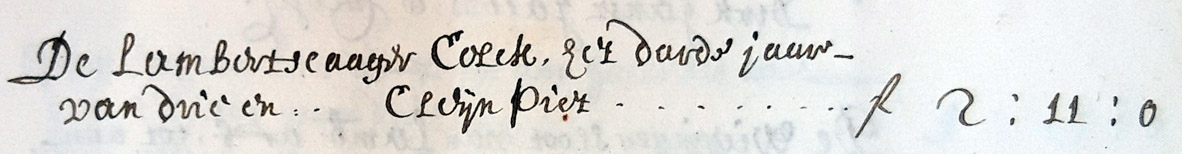 De Lambertscaager Colck, het darde jaar –
van drie en . . Cleijn Piet . . . . . . . . . f 2 : 11 : 0